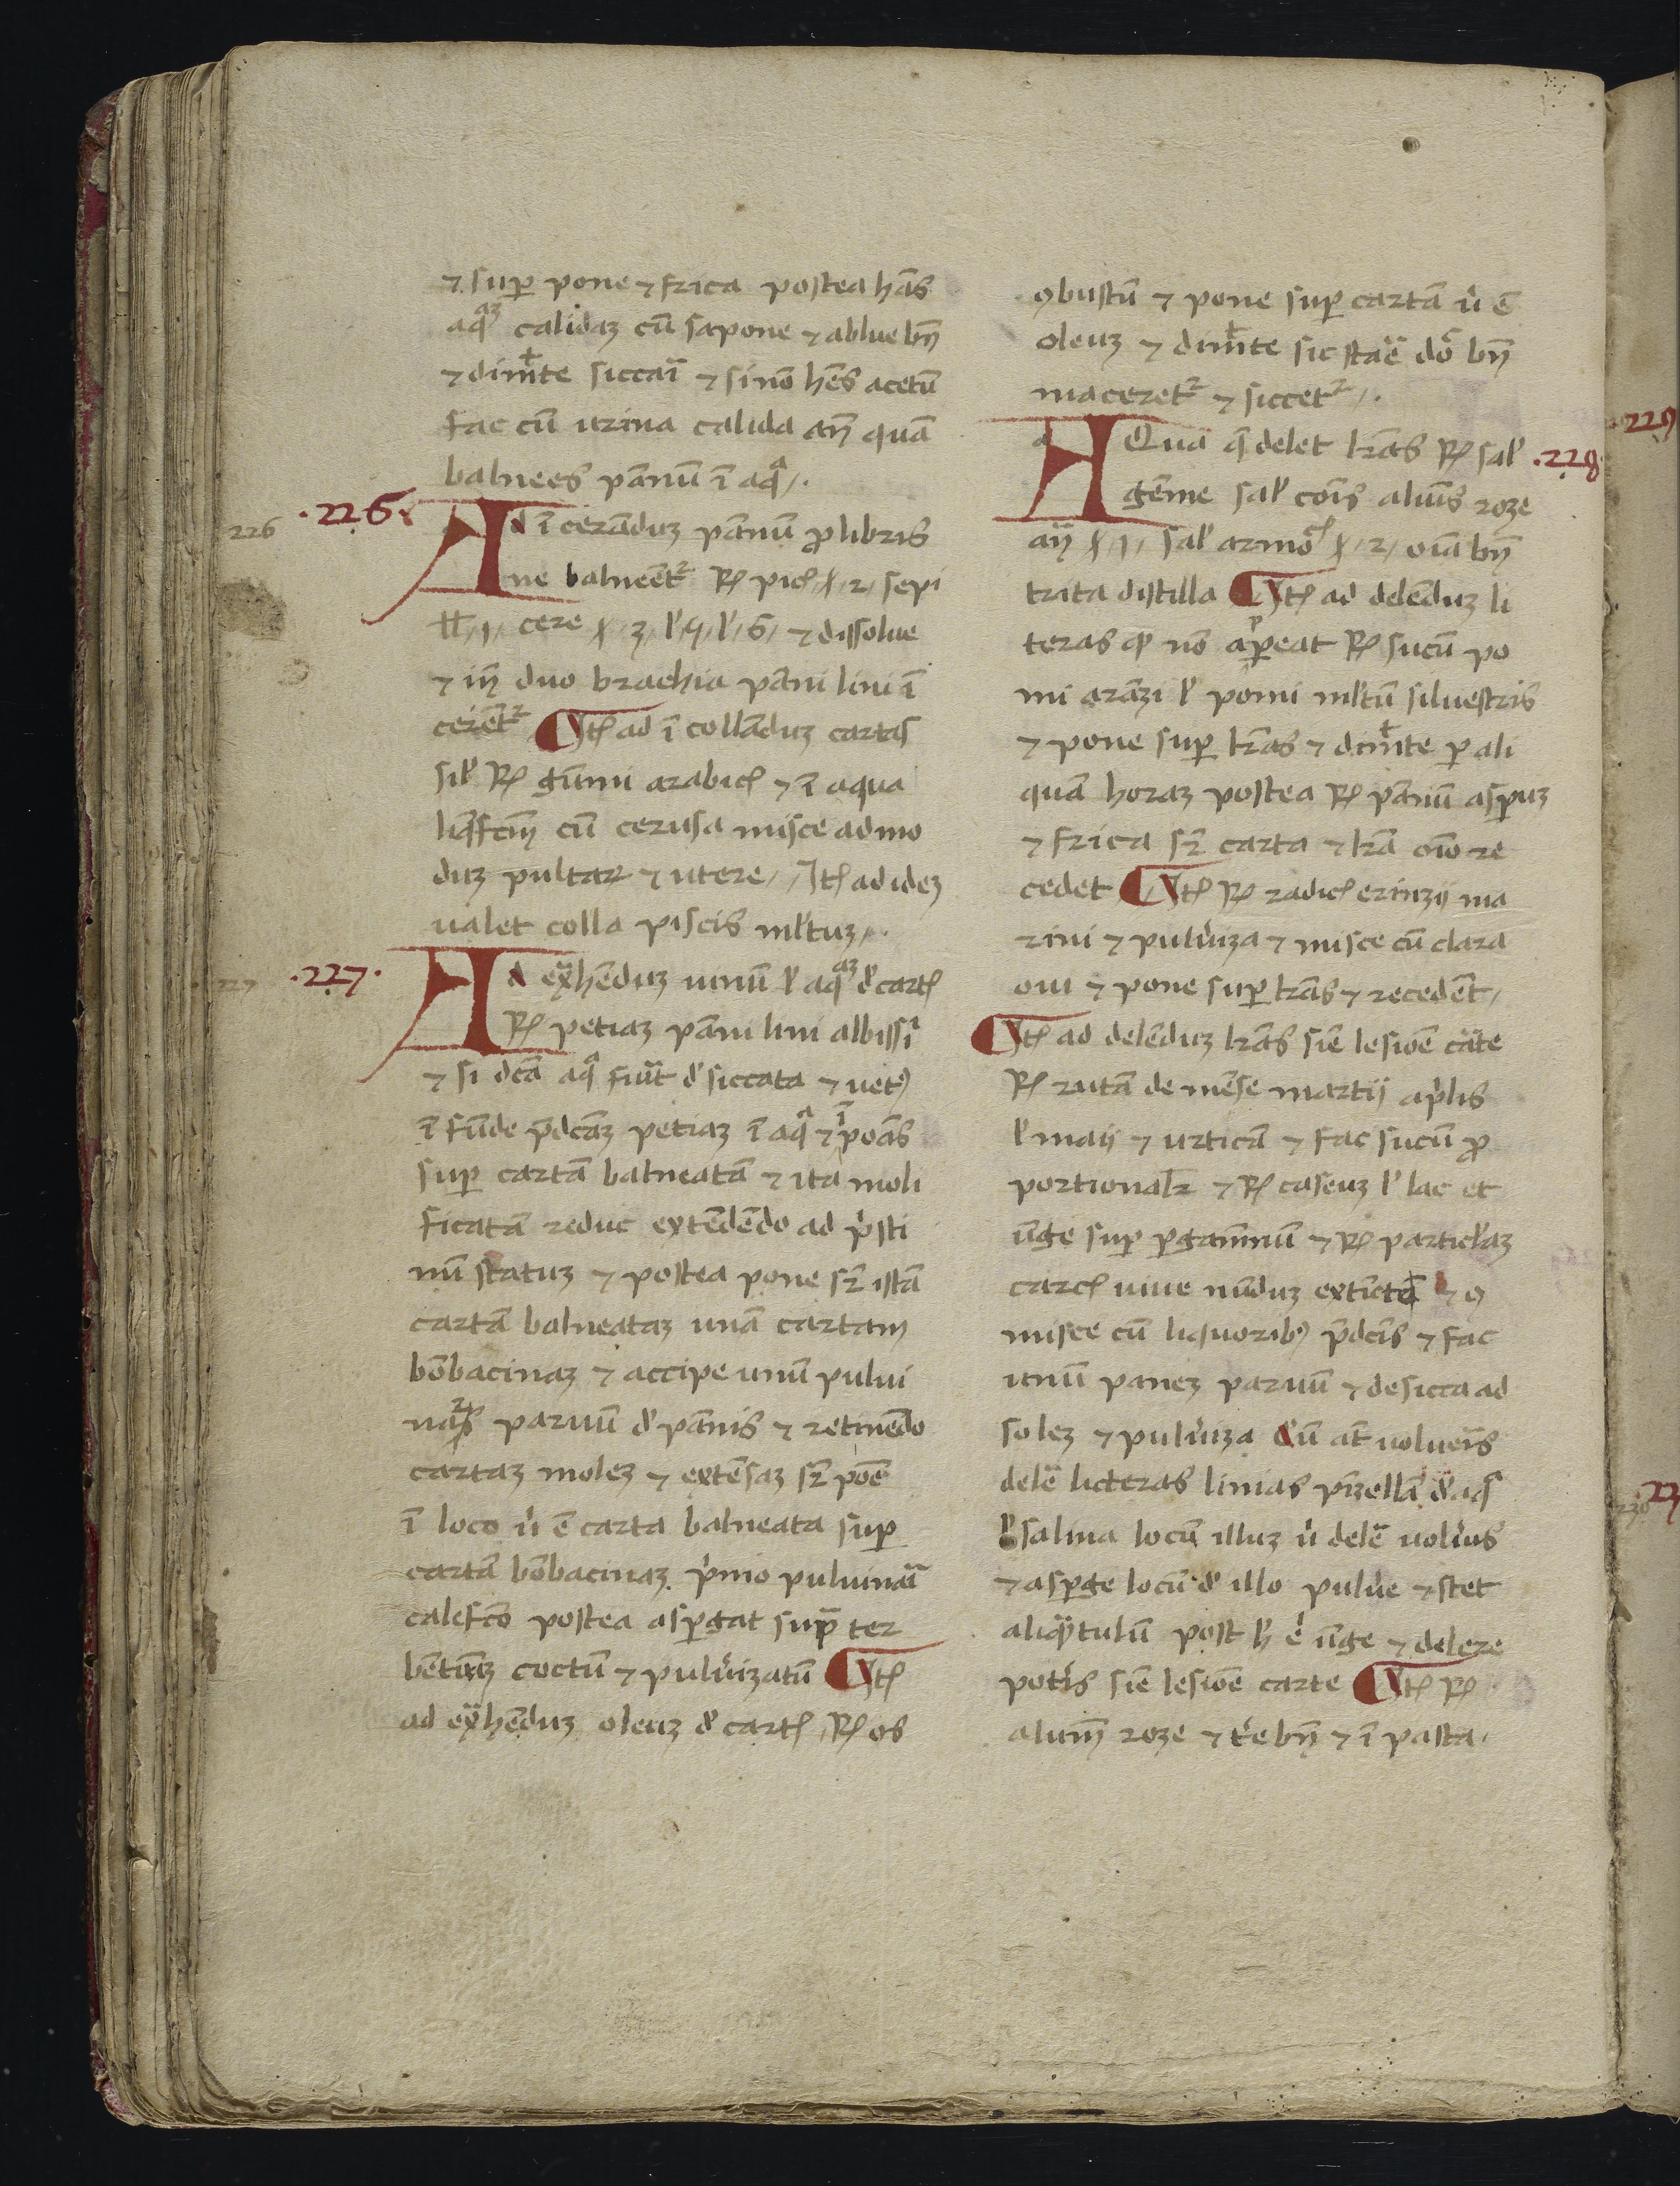 ⁊ sup pone ⁊ frica postea hās
aqaʒ calidaʒ cū sapone ⁊ ablue bn̄
⁊ dimt̄te siccaī ⁊ si nō hēs acetū
fac cū urina calida an̄ quā
balnees pānū ī aqa
.226.
226
Ad ī cerāduʒ pānū ꝓ libris
ne balneēt2 ℞ picͥ 2 sepi
1 cere 3 lͥ 4 lͥ 5 ⁊ dissolue
⁊ in̄ duo brachia pāni lini ī
cerēt2 Itꝫ ad ī collāduʒ cartas
silͥ ℞ gūmi arabicꝫ ⁊ ī aqua
liqfcm̄ cū cerusa misce ad mo
duʒ pultar ⁊ utere Itꝫ ad ideʒ
ualet colla piscis mltuʒ
.227.
227
Ad ex̄hēduʒ uinū lͥ aqaʒ dͥ cartꝫ
℞ petiaʒ pāni lini albissī
⁊ si dcā aqa fiūt dͥ siccata ⁊ uetꝰ
ī fūde p̄dcāʒ petiaʒ ī aqa ⁊ ī poās
sup cartā balneatā ⁊ ita moli
ficatā reduc extēdēdo ad pͥsti
nū statuʒ ⁊ postea pone sr̄ istā
cartā balneataʒ unā cartam
bōbacinaʒ ⁊ accipe unū pului
nar parvū dͥ pānis ⁊ retinēdo
cartaʒ moleʒ ⁊ extēsaʒ sr̄ poē
ī loco uͥ ē carta balneata sup
cartā bōbacinaʒ pͥmo puluinā
calefco postea aspgat sup̄ ter
bētinaʒ coctū ⁊ pulūizatū Itꝫ
ad ex̄hēduʒ oleuʒ dͥ cartꝫ ℞ os
ꝯbustū ⁊ pone sup cartā uͥ ē
oleuʒ ⁊ dimt̄te sic staē do bn̄
maceret2 ⁊ siccet2
.228.
AQua q̄ delet lrās ℞ salͥ
gēme salͥ cōis aluīs roze
an̄ 1 salͥ armo 2 oīa bn̄
trita distilla Itꝫ ad delēduʒ li
teras qͥ nō appeat ℞ sucū po
mi arāzi lͥ pomi mltū siluestris
⁊ pone sup lrās ⁊ dimt̄te p ali
quā horaʒ postea ℞ pānū aspuʒ
⁊ frica sr̄ carta ⁊ lrā oīo re
cedet Itꝫ ℞ radicꝫ erinzii ma
rini ⁊ pulūiza ⁊ misce cū clara
oui ⁊ pone sup lrās ⁊ recedēt
Itꝫ ad delēduʒ lrās siē lesiōe cāte
℞ rutā de mēse martij apͥlis
lͥ maij ⁊ urticā ⁊ fac sucū ꝓ
portionalr̄ ⁊ ℞ caseuʒ lͥ lac et
ūge sup pgamnū ⁊ ℞ particlaʒ
carcꝫ uiue nūduʒ extīcte ⁊ ꝯ
misce cū liquoribꝰ p̄dcīs ⁊ fac
unū paneʒ paruū ⁊ desicca ad
soleʒ ⁊ pulūiza dū at̄ uoluēis
delē licteras linias pzellā dͥ aqa
lͥ salina locū illuʒ uͥ delē uolūͥs
⁊ aspge locū dͥ illo pulūe ⁊ stet
aliqͣtulū post hͥ ē ūge ⁊ delere
potͥis siē lesiōe carte Itꝫ ℞
alumn̄ roze ⁊ tͥe bn̄ ⁊ ī pasta
229
230